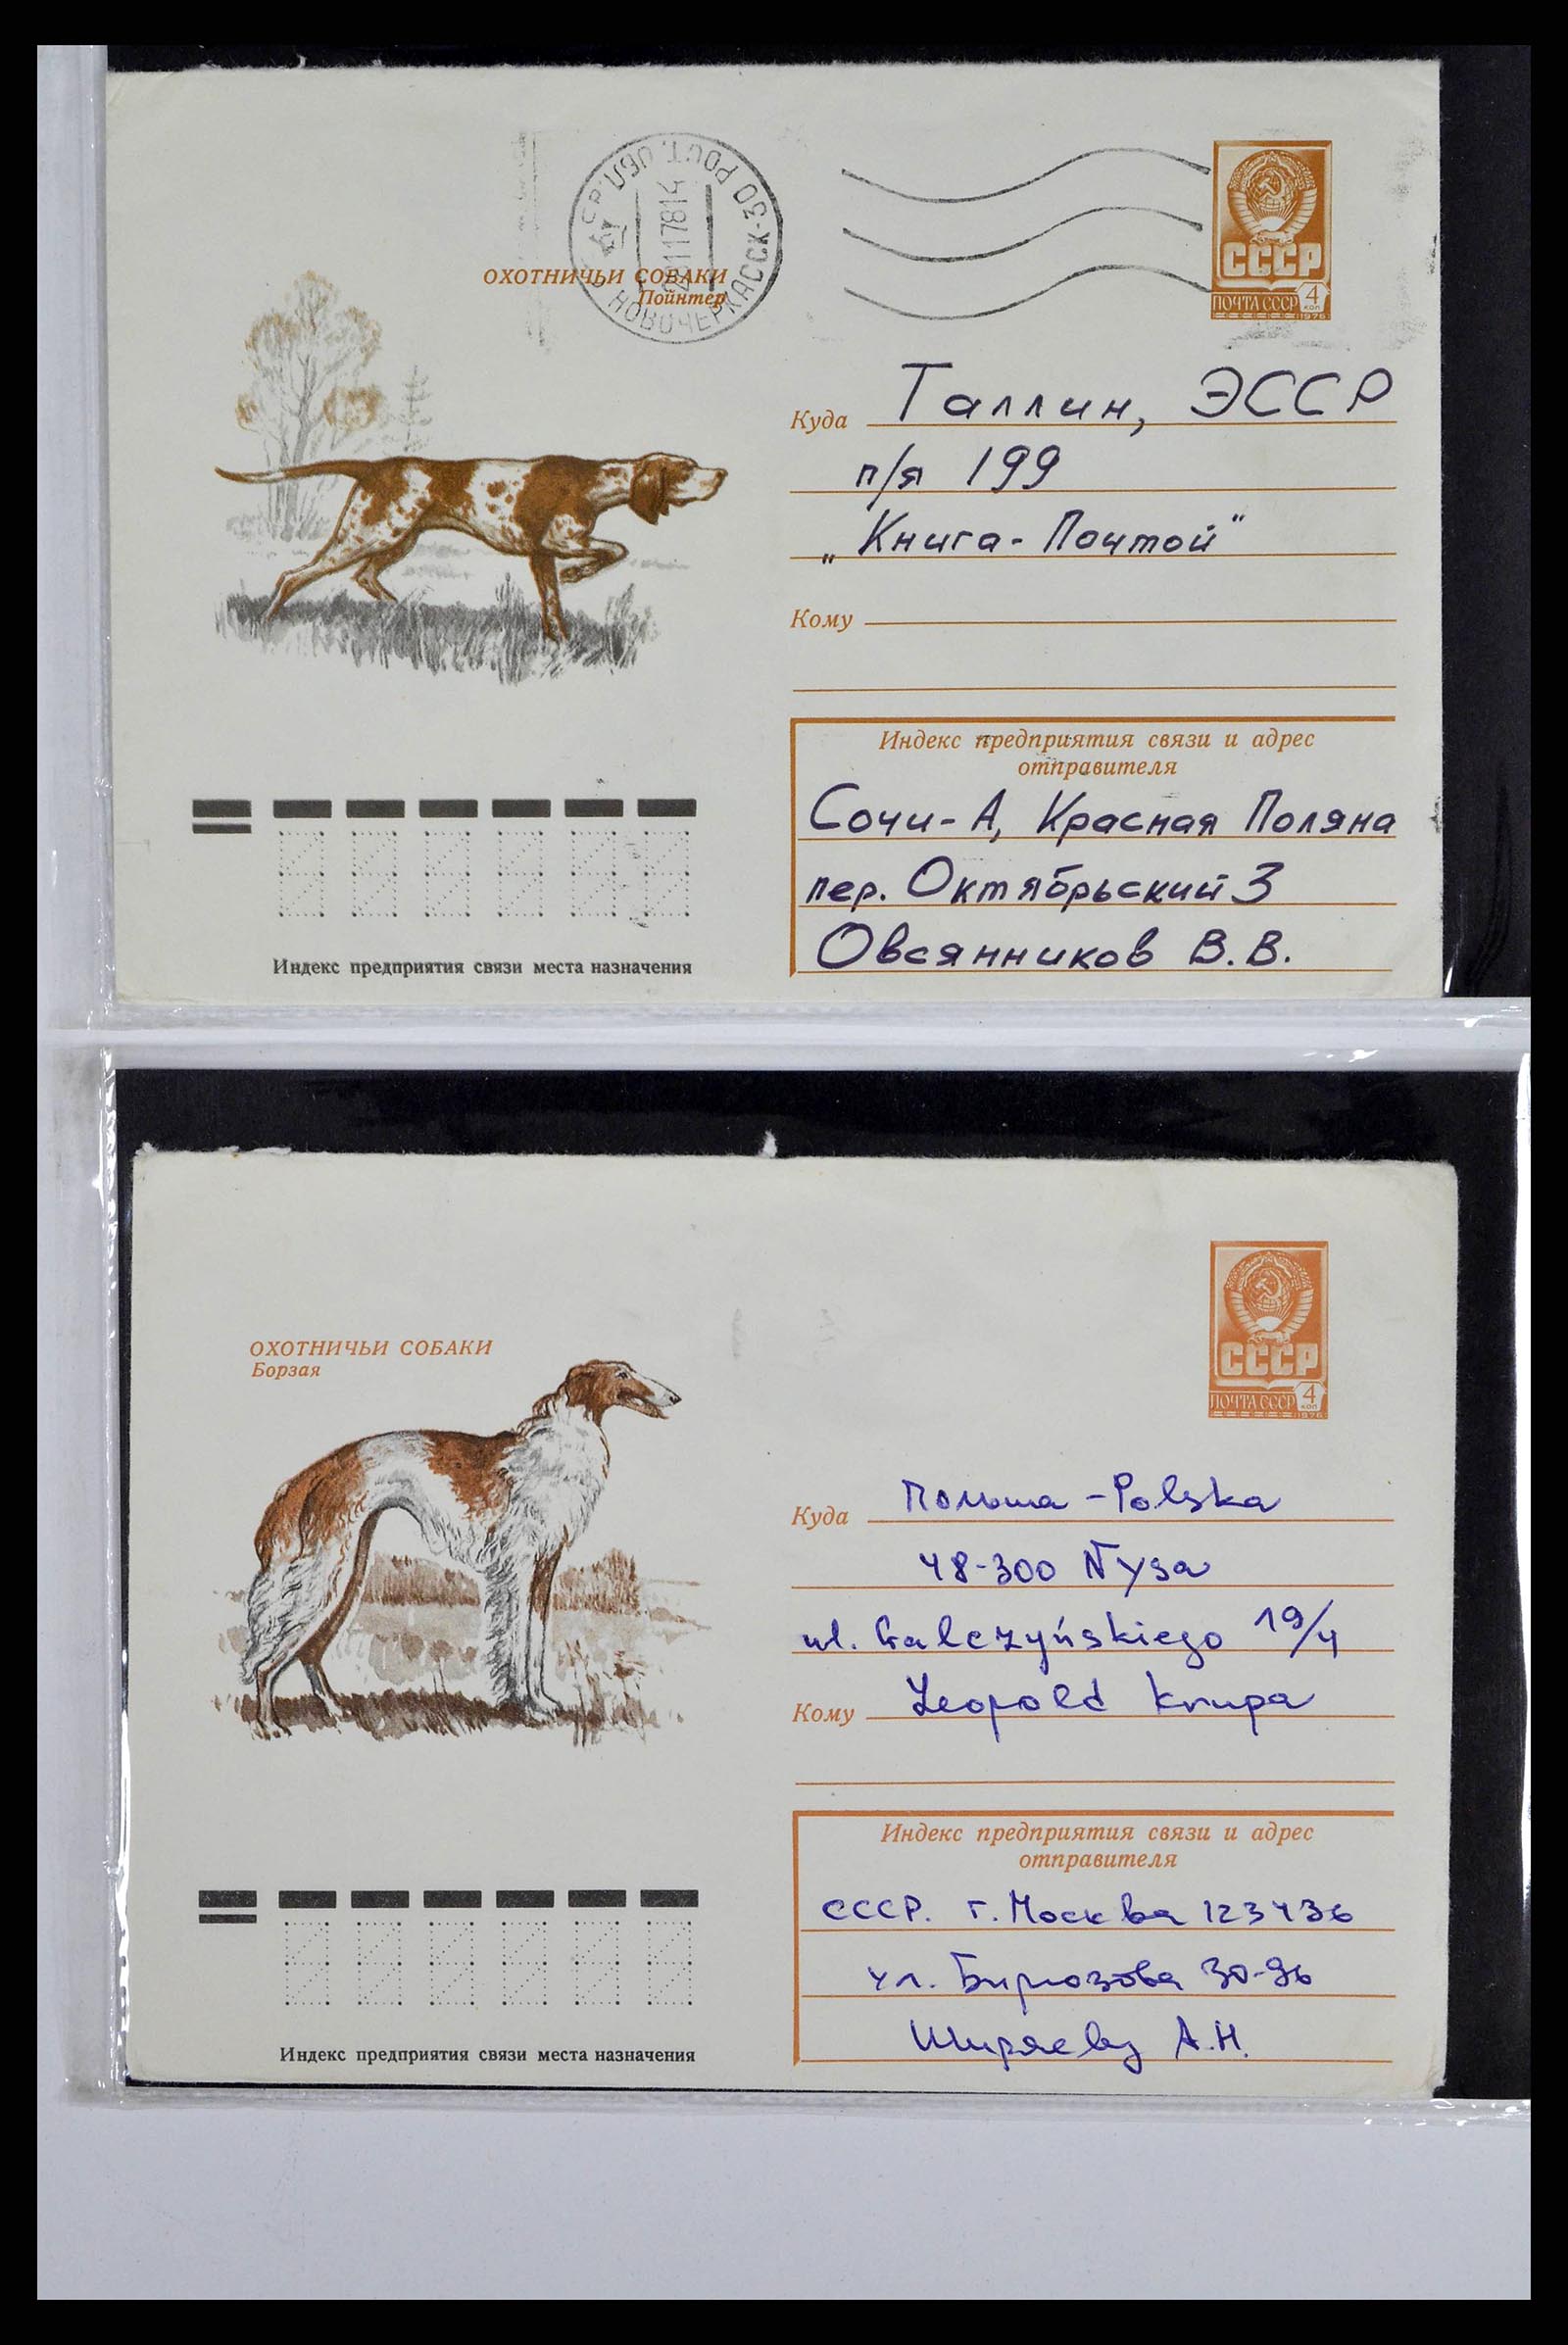 НОВОЧЕРКАССК-30 РОСТ. ОБЛ.
ОХОТНИЧЬИ СОБАКИ
Пойнтер
СССР
ПОЧТА СССР 4 коп
1976
Куда Таллин, ЭССР
п/я 199
„Книга-Почтой"
Кому
Индекс предприятия связи и адрес
отправителя
Сочи-А, Красная Поляна
пер. Октябрьский 3
Овсянников В.В.
Индекс предприятия связи места назначения
ОХОТНИЧЬИ СОБАКИ
Борзая
СССР
ПОЧТА СССР 4 коп
1976
Куда Польша - Polska
48-300 Nysa
ul. Gałczyńskiego 19/4
Кому Leopold Krupa
Индекс предприятия связи и адрес
отправителя
СССР. г. Москва 123436
ул. Бирюзова 30-96
Ширяеву А.Н.
Индекс предприятия связи места назначения